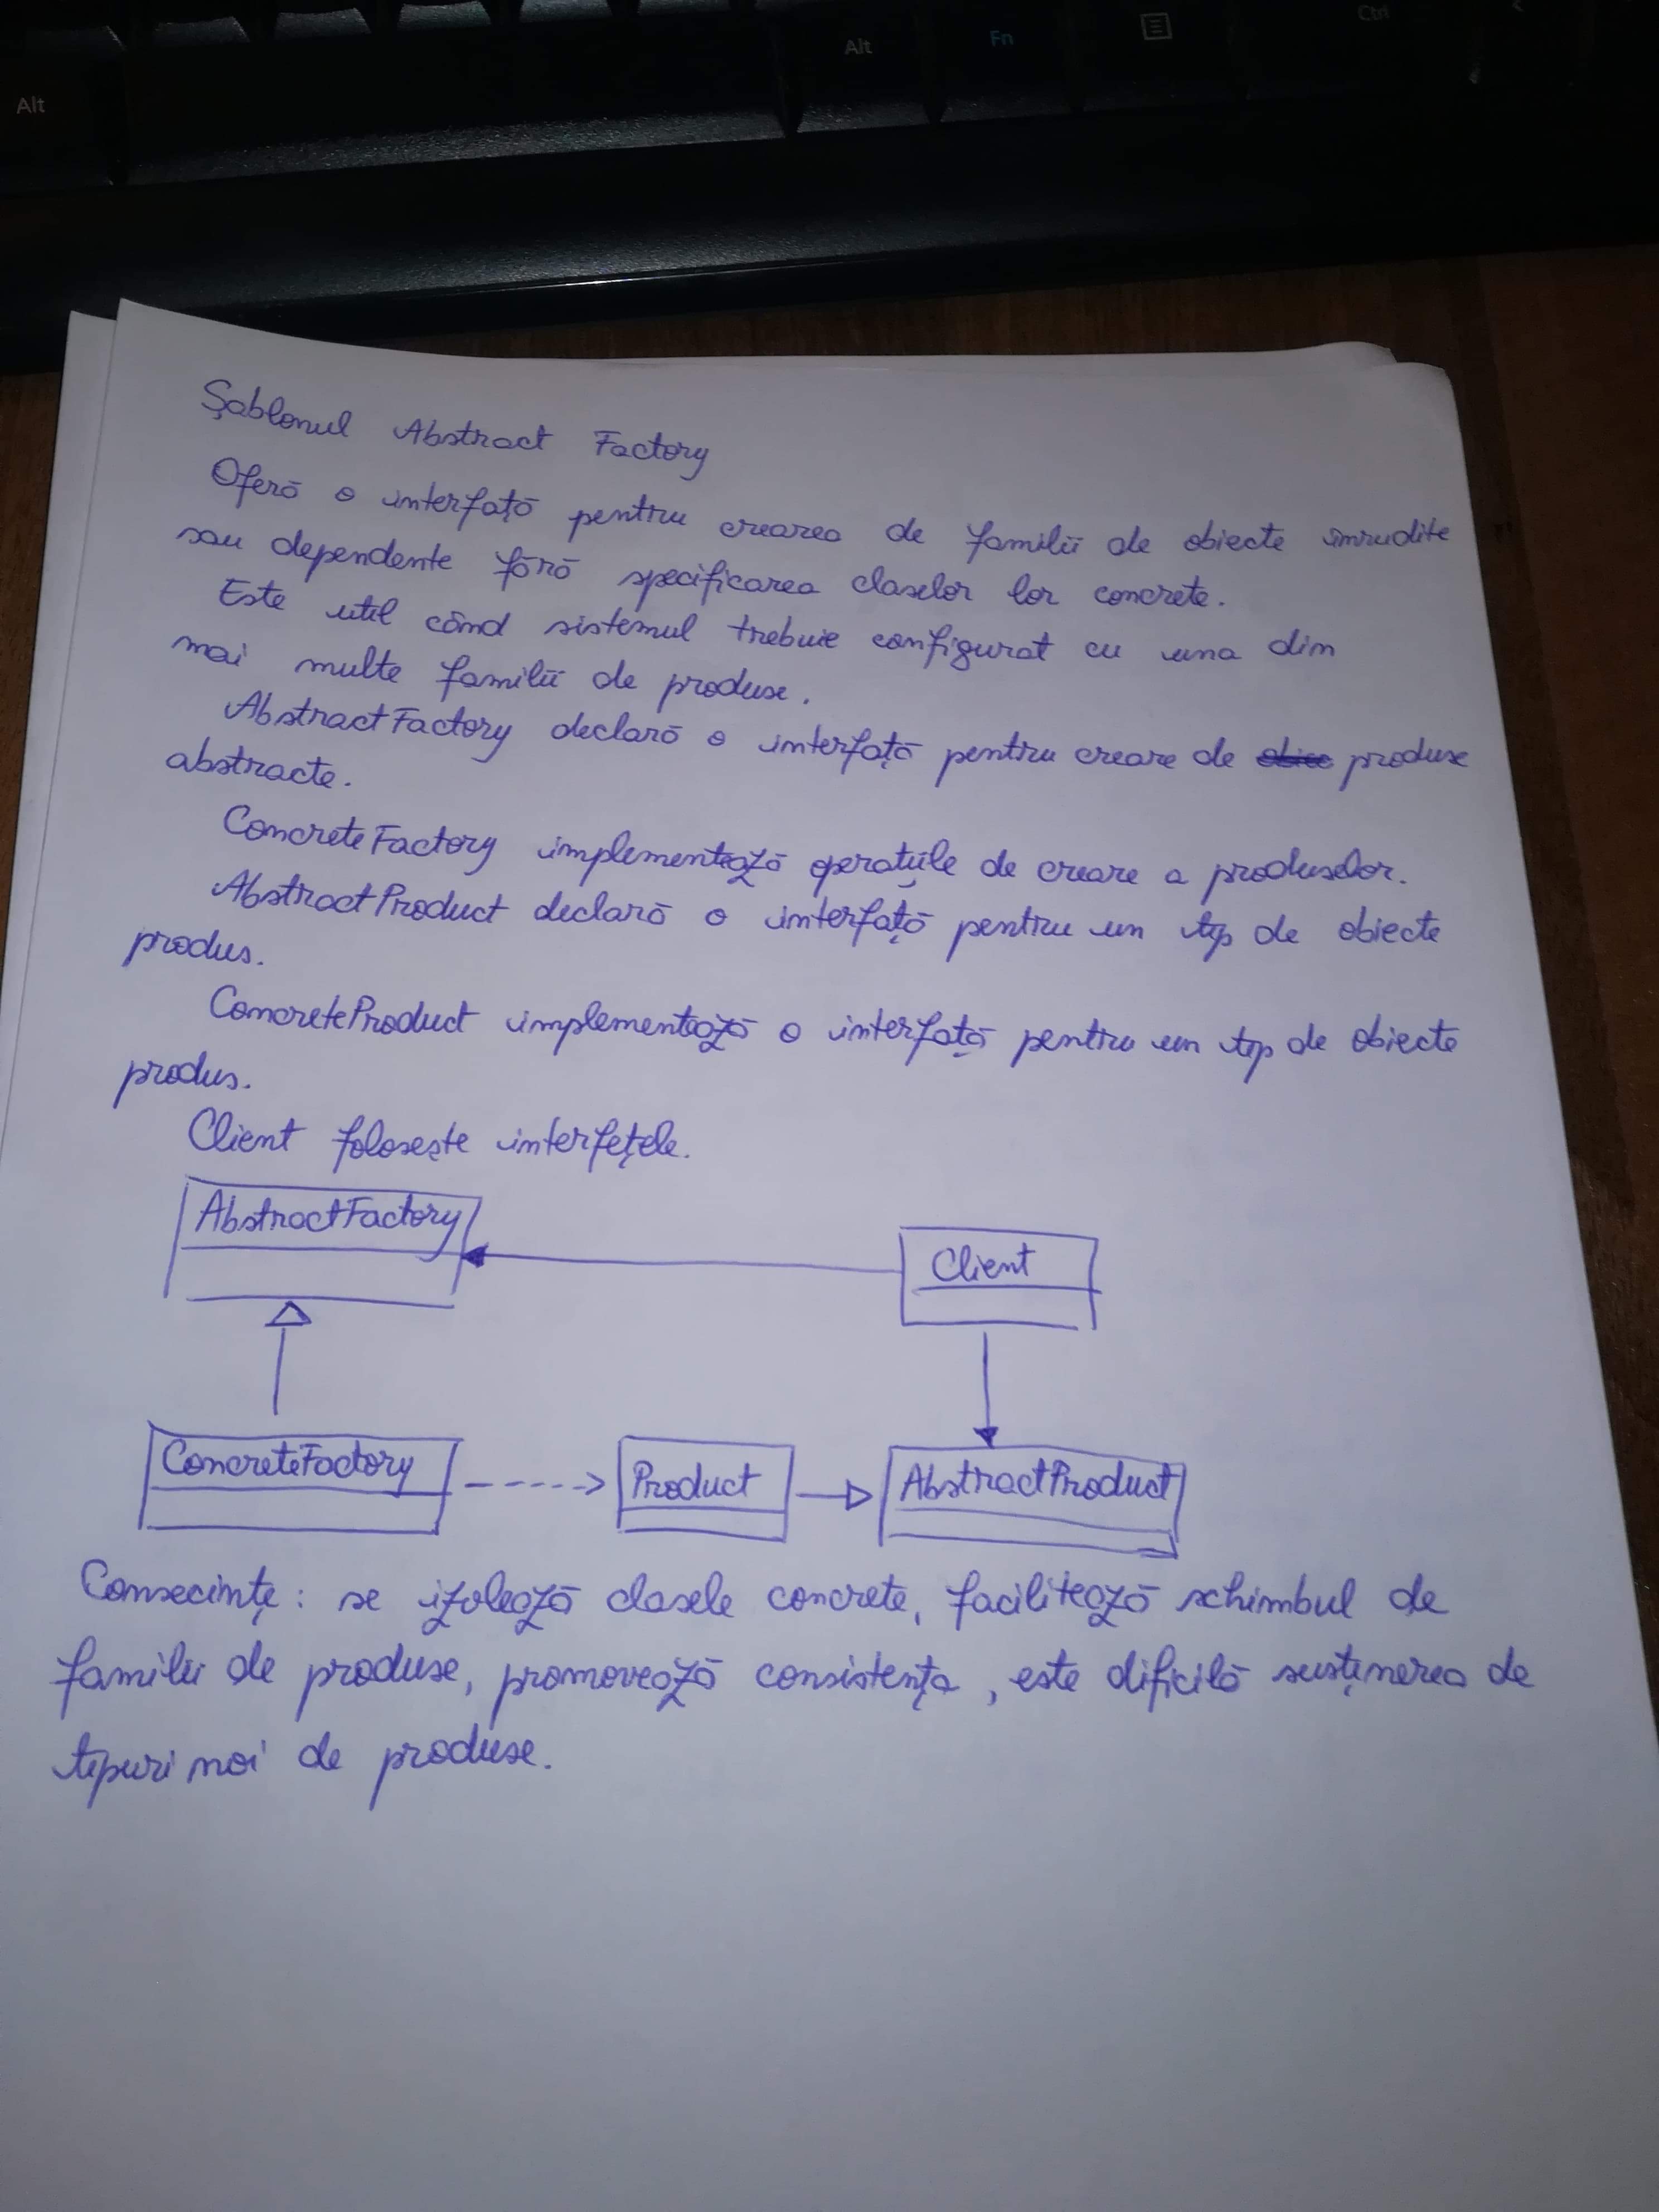 Alt Fn Ctrl
Alt
Șablonul Abstract Factory
Oferă o interfață pentru crearea de familii de obiecte înrudite
sau dependente fără specificarea claselor lor concrete.
Este util când sistemul trebuie configurat cu una din
mai multe familii de produse.
AbstractFactory declară o interfață pentru creare de obiec produse
abstracte.
ConcreteFactory implementează operațiile de creare a produselor.
AbstractProduct declară o interfață pentru un tip de obiecte
produs.
ConcreteProduct implementează o interfață pentru un tip de obiecte
produs.
Client folosește interfețele.
AbstractFactory
Client
ConcreteFactory
Product
AbstractProduct
Consecințe: se izolează clasele concrete, facilitează schimbul de
familii de produse, promovează consistența, este dificilă susținerea de
tipuri noi de produse.